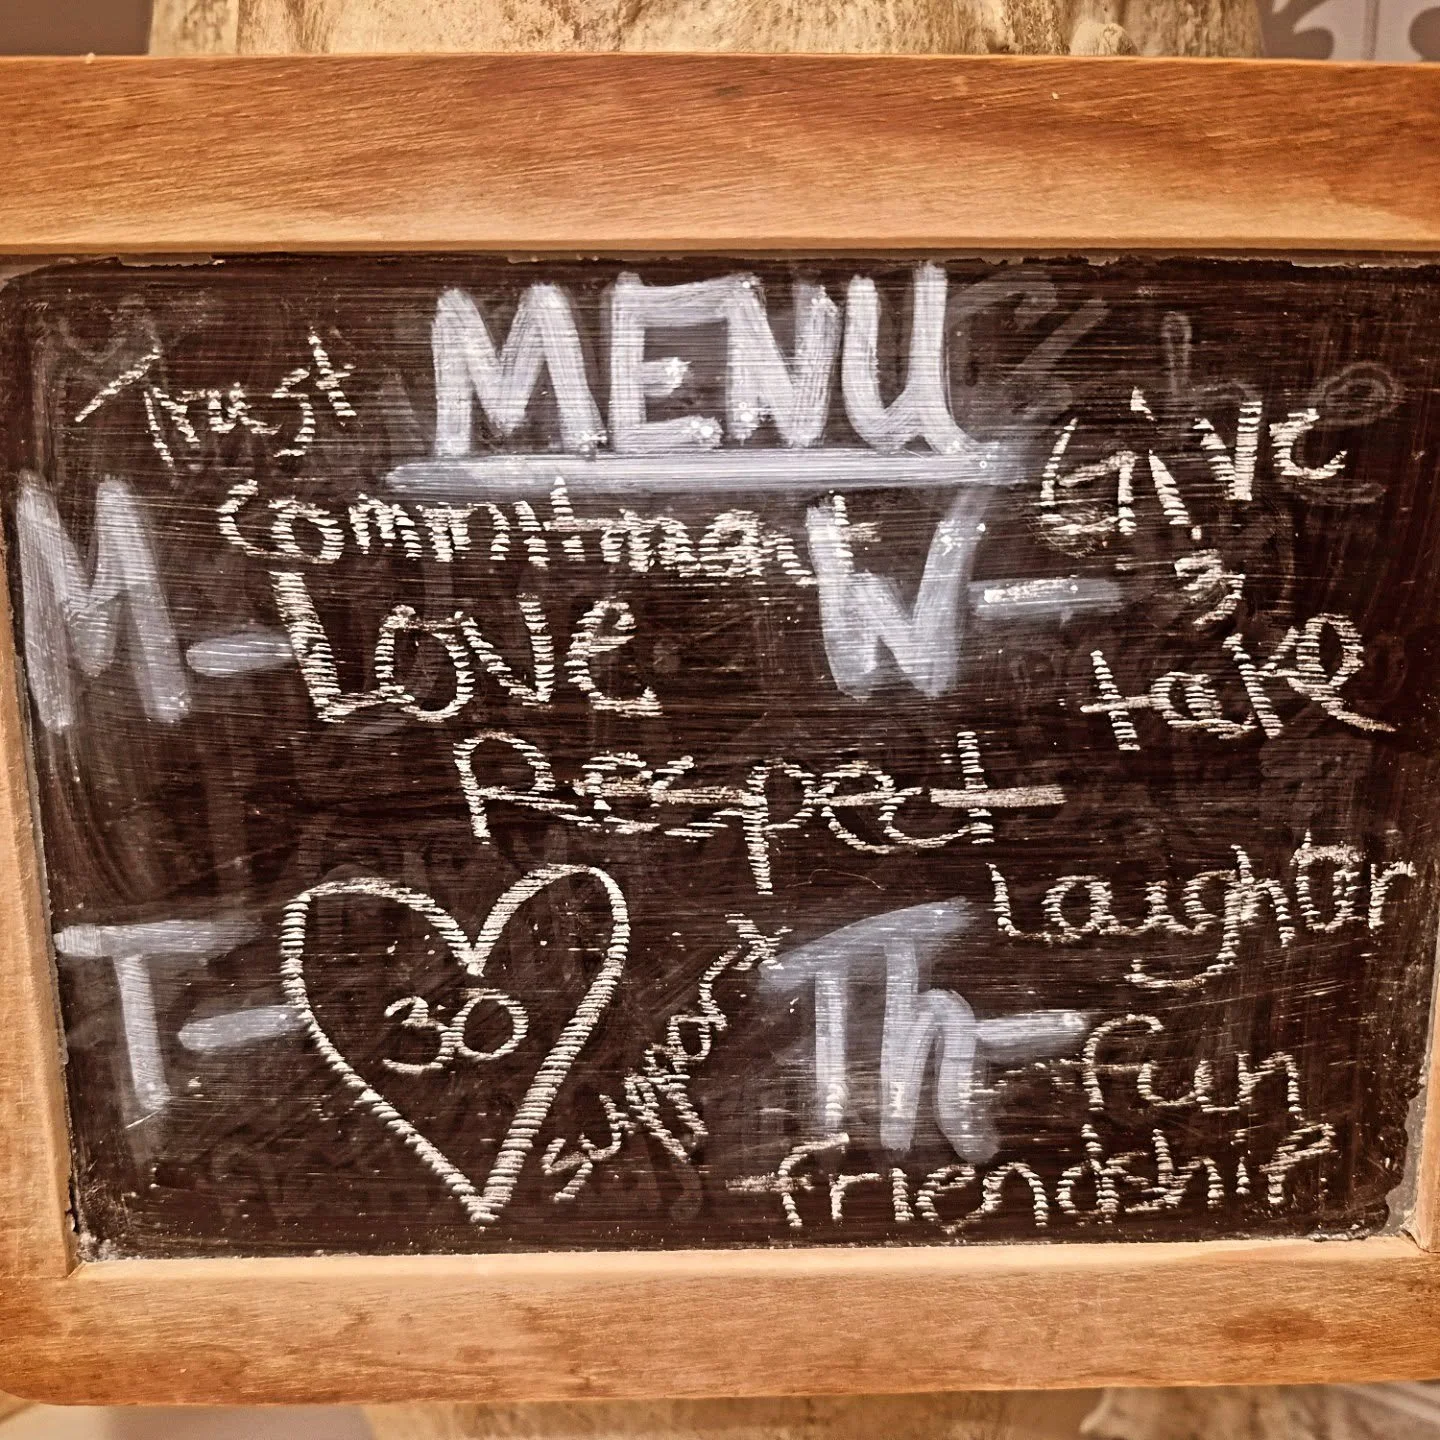 MENU
Trust
Give
M-
Commitment
W-
&
Love
take
Respect
Laughter
T-
30
Support
Th-
fun
friendship